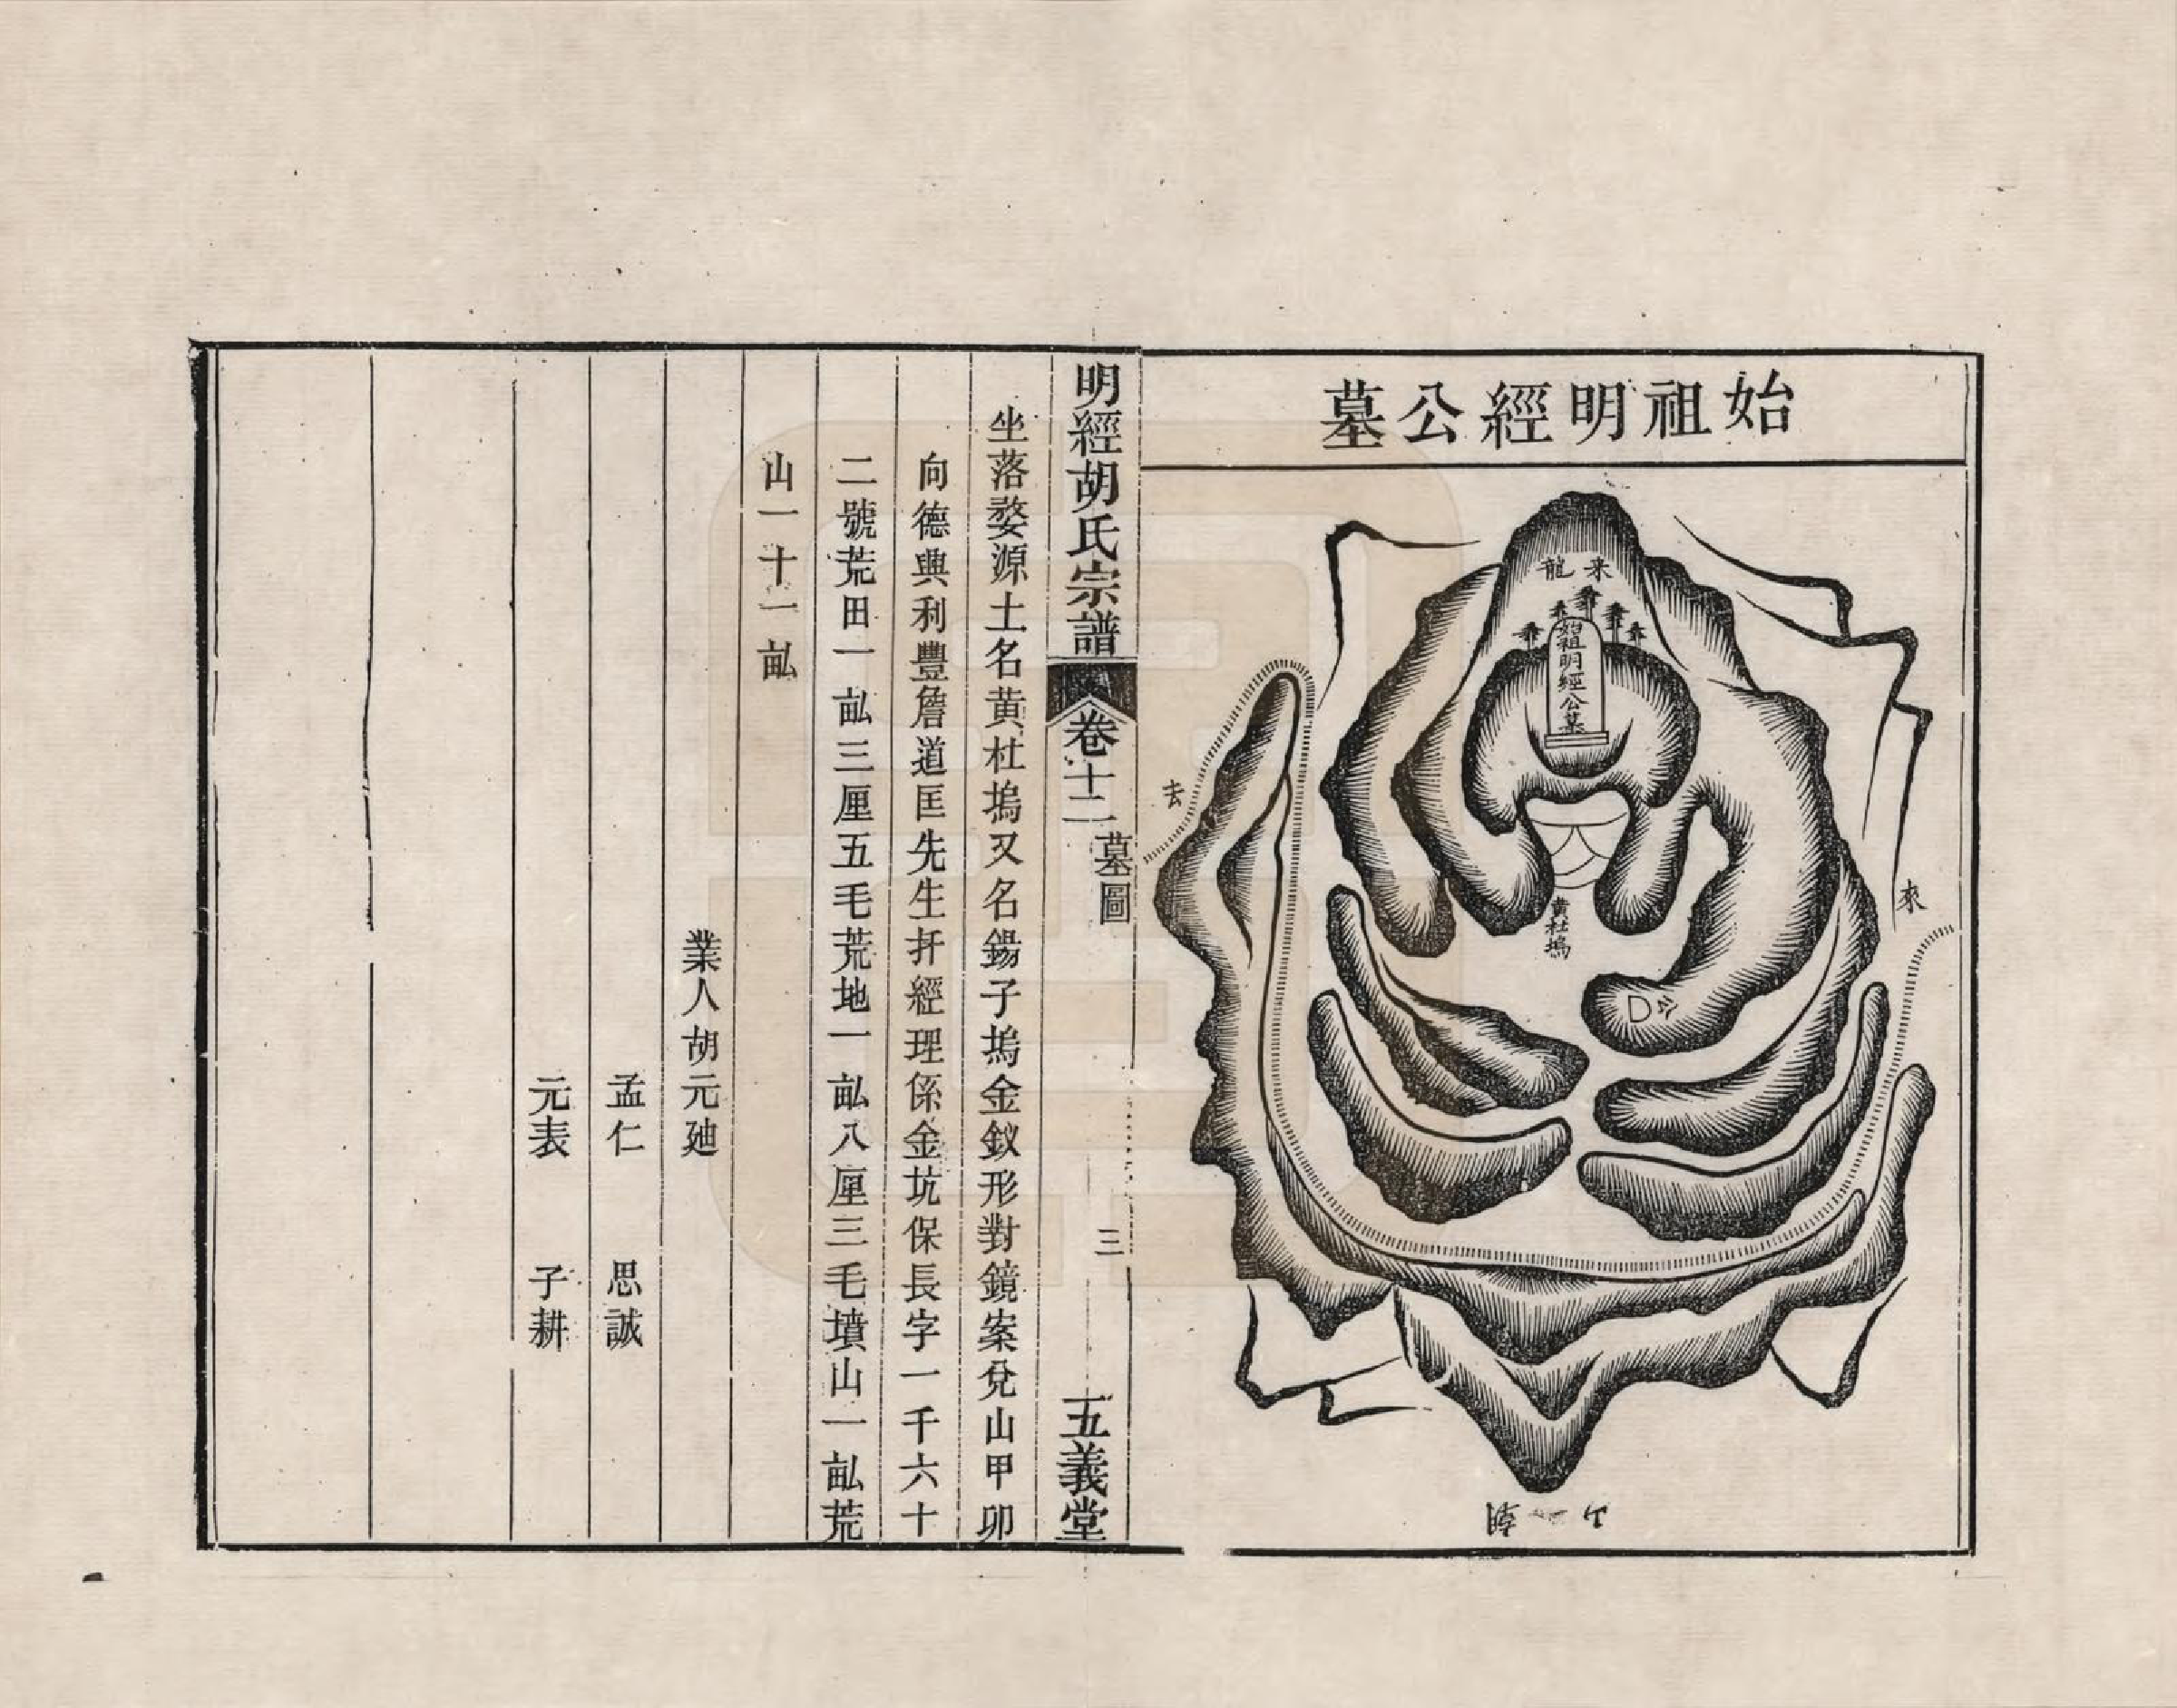 始祖明經公墓
来龍
始祖明經公墓
黄杜塢
去
來
公
朝山
明經胡氏宗譜
卷十二
墓圖
三
五義堂
坐落婺源土名黄杜塢又名鍚子塢金釵形對鏡案兌山甲卯
向德興利豐詹道匡先生扦經理係金坑保長字一千六十
二號荒田一畝三厘五毛荒地一畝八厘三毛墳山一畝荒
山一十一畝
業人胡元廸
孟仁 思誠
元表 子耕